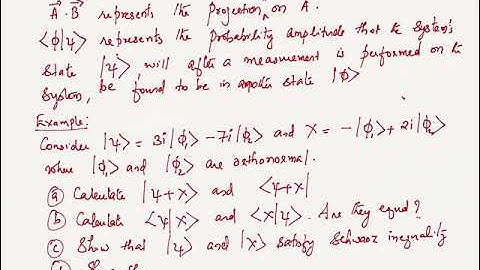 A⃗·B⃗ represents the projection, on A.
⟨ϕ|ψ⟩ represents the probability amplitude that the system's
state |ψ⟩, will after a measurement is performed on the
system, be found to be in another state |ϕ⟩
Example:
Consider |ψ⟩ = 3i|ϕ₁⟩ − 7i|ϕ₂⟩ and χ = −|ϕ₁⟩ + 2i|ϕ₂⟩
where |ϕ₁⟩ and |ϕ₂⟩ are orthonormal.
ⓐ Calculate |ψ+χ⟩ and ⟨ψ+χ|
ⓑ Calculate ⟨ψ|χ⟩ and ⟨χ|ψ⟩. Are they equal?
ⓒ Show that |ψ⟩ and |χ⟩ satisfy Schwarz inequality